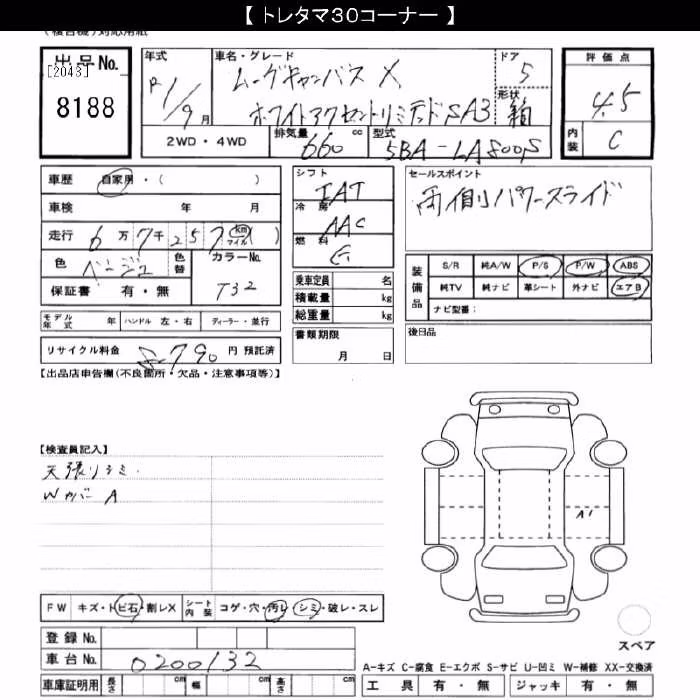 【 トレタマ30コーナー 】
(複合機)対応用紙
出品No. [2043] 8188
年式 R1/9月
車名・グレード ムーヴキャンバス X
ホワイトアクセントリミテッドSA3
ドア 5
形状 箱
評価点 4.5
内装 C
2WD・4WD
排気量 660 cc
型式 5BA-LA800S
車歴 自家用・( )
車検 年 月
走行 6万7千257 km マイル ( )
色 ベージュ
色替
カラーNo. T32
保証書 有・無
シフト IAT
冷房 AAC
燃料 G
乗車定員 名
積載量 kg
総重量 kg
書類期限 月 日
セールスポイント
両側パワースライド
装備品 S/R 純A/W P/S P/W ABS
純TV 純ナビ 革シート 外ナビ エアB
ナビ型番:
後日品
モデル年式 年 ハンドル 左・右 ディーラー・並行
リサイクル料金 円 預託済
【出品店申告欄(不良箇所・欠品・注意事項等)】
【検査員記入】
天張りシミ.
Wカバー A
A1
FW キズ・トビ石・割レX シート内装 コゲ・穴・汚レ・シミ・破レ・スレ
登録No.
車台No. 0200132
車庫証明用 長さ cm 幅 cm 高さ cm
スペア
A-キズ C-腐食 E-エクボ S-サビ U-凹ミ W-補修 XX-交換済
工具 有・無 ジャッキ 有・無